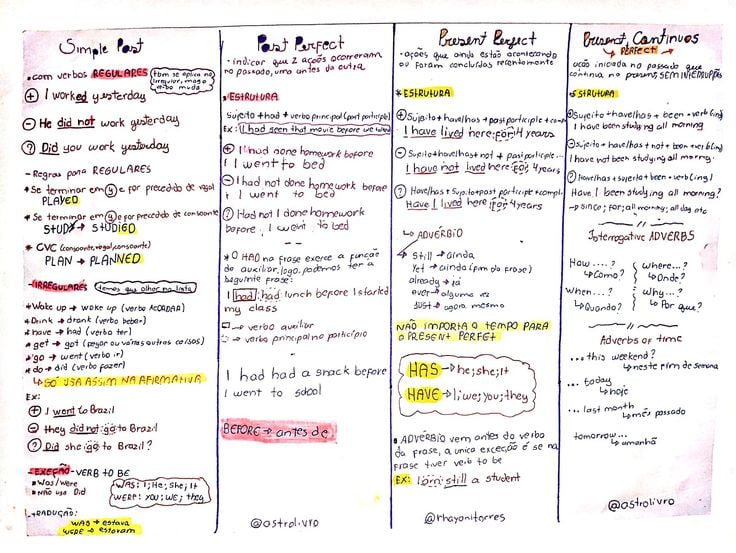 Simple Past
• com verbos REGULARES
tbm se aplica no irregular, mas o verbo muda
+ I worked yesterday
- He did not work yesterday
? Did you work yesterday
- Regras para REGULARES
* Se terminar em y e for precedido de vogal
PLAYED
* Se terminar em y e for precedido de consoante
STUDY → STUDIED
* CVC (consoante, vogal, consoante)
PLAN → PLANNED
- IRREGULARES
temos que olhar na lista
* Woke up → woke up (verbo ACORDAR)
* Drink → drank (verbo beber)
* have → had (verbo ter)
* get → got (pegar ou várias outras coisas)
* go → went (verbo ir)
* do → did (verbo fazer)
↳ SÓ USA ASSIM NA AFIRMATIVA
Ex:
+ I went to Brazil
- they did not go to Brazil
? Did she go to Brazil?
- EXEÇÃO - VERB TO BE
• Was/were
• Não usa Did
WAS: I; He; she; It
WERE: you; we; they
TRADUÇÃO:
WAS → estava
WERE → estavam
Past Perfect
• indicar que 2 ações ocorreram
no passado, uma antes da outra
• ESTRUTURA
Sujeito + had + verbo principal (past participle)
Ex: I had seen that movie before we
+ I had done homework before
I went to bed
- I had not done homework before
I went to bed
? Had not I done homework
before I went to bed
* O HAD na frase exerce a função
de auxiliar, logo, podemos ter a
seguinte frase:
I had had lunch before I started
my class
→ verbo auxiliar
→ verbo principal no particípio
I had had a snack before
I went to school
BEFORE → antes de
@astrolivro
Present Perfect
• ações que ainda estão acontecendo
ou foram concluídas recentemente
* ESTRUTURA
+ Sujeito + have/has + past participle + comp
I have lived here for 4 years
- Sujeito + have/has + not + past participle...
I have not lived here for 4 years
? Have/has + Sujeito + past participle + compl
Have I lived here for 4 years
↳ ADVÉRBIO
Still → ainda
Yet → ainda (fim da frase)
already → já
ever → alguma vez
just → agora mesmo
NÃO IMPORTA O TEMPO PARA
O PRESENT PERFECT
HAS → he; she; It
HAVE → I; we; you; they
• ADVÉRBIO vem antes do verbo
da frase, a unica exceção é se na
frase tiver verb to be
EX: I am still a student
@rhayanitorres
Present, Continuos
↳ PERFECT
ação iniciada no passado que
continua no present, SEM INTERRUPÇÃO
STRUTURA
+ Sujeito + have/has + been + verb (ing)
I have been studying all morning
- Sujeito + have/has + not + been + verb (ing)
I have not been studying all morning.
? Have/has + sujeito + been + verb (ing)
Have I been studying all morning?
↳ since; for; all morning; all day etc
Interrogative ADVERBS
How....?
↳ Como?
Where...?
↳ Onde?
When...?
↳ Quando?
Why...?
↳ Por que?
Adverbs of time
... this weekend?
↳ neste fim de semana
... today
↳ hoje
... last month
↳ mês passado
tomorrow...
↳ amanhã
@astrolivro